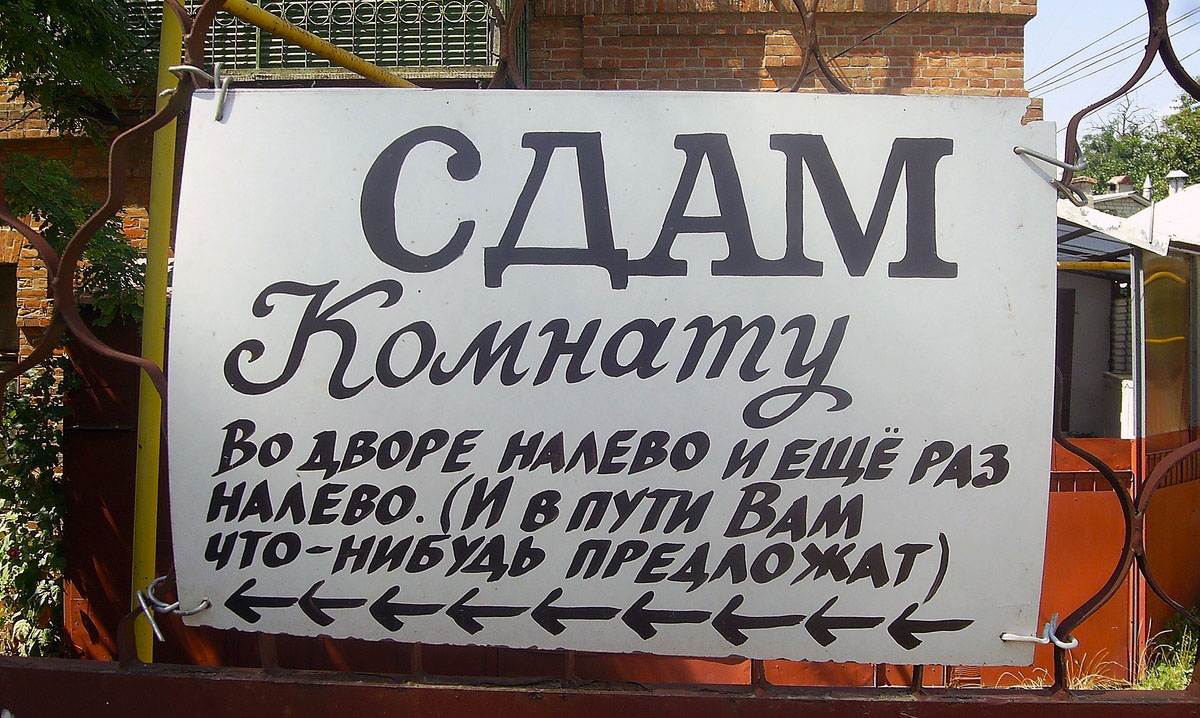 СДАМ
Комнату
Во дворе налево и ещё раз
налево. (И в пути Вам
что-нибудь предложат)
←←←←←←←←←